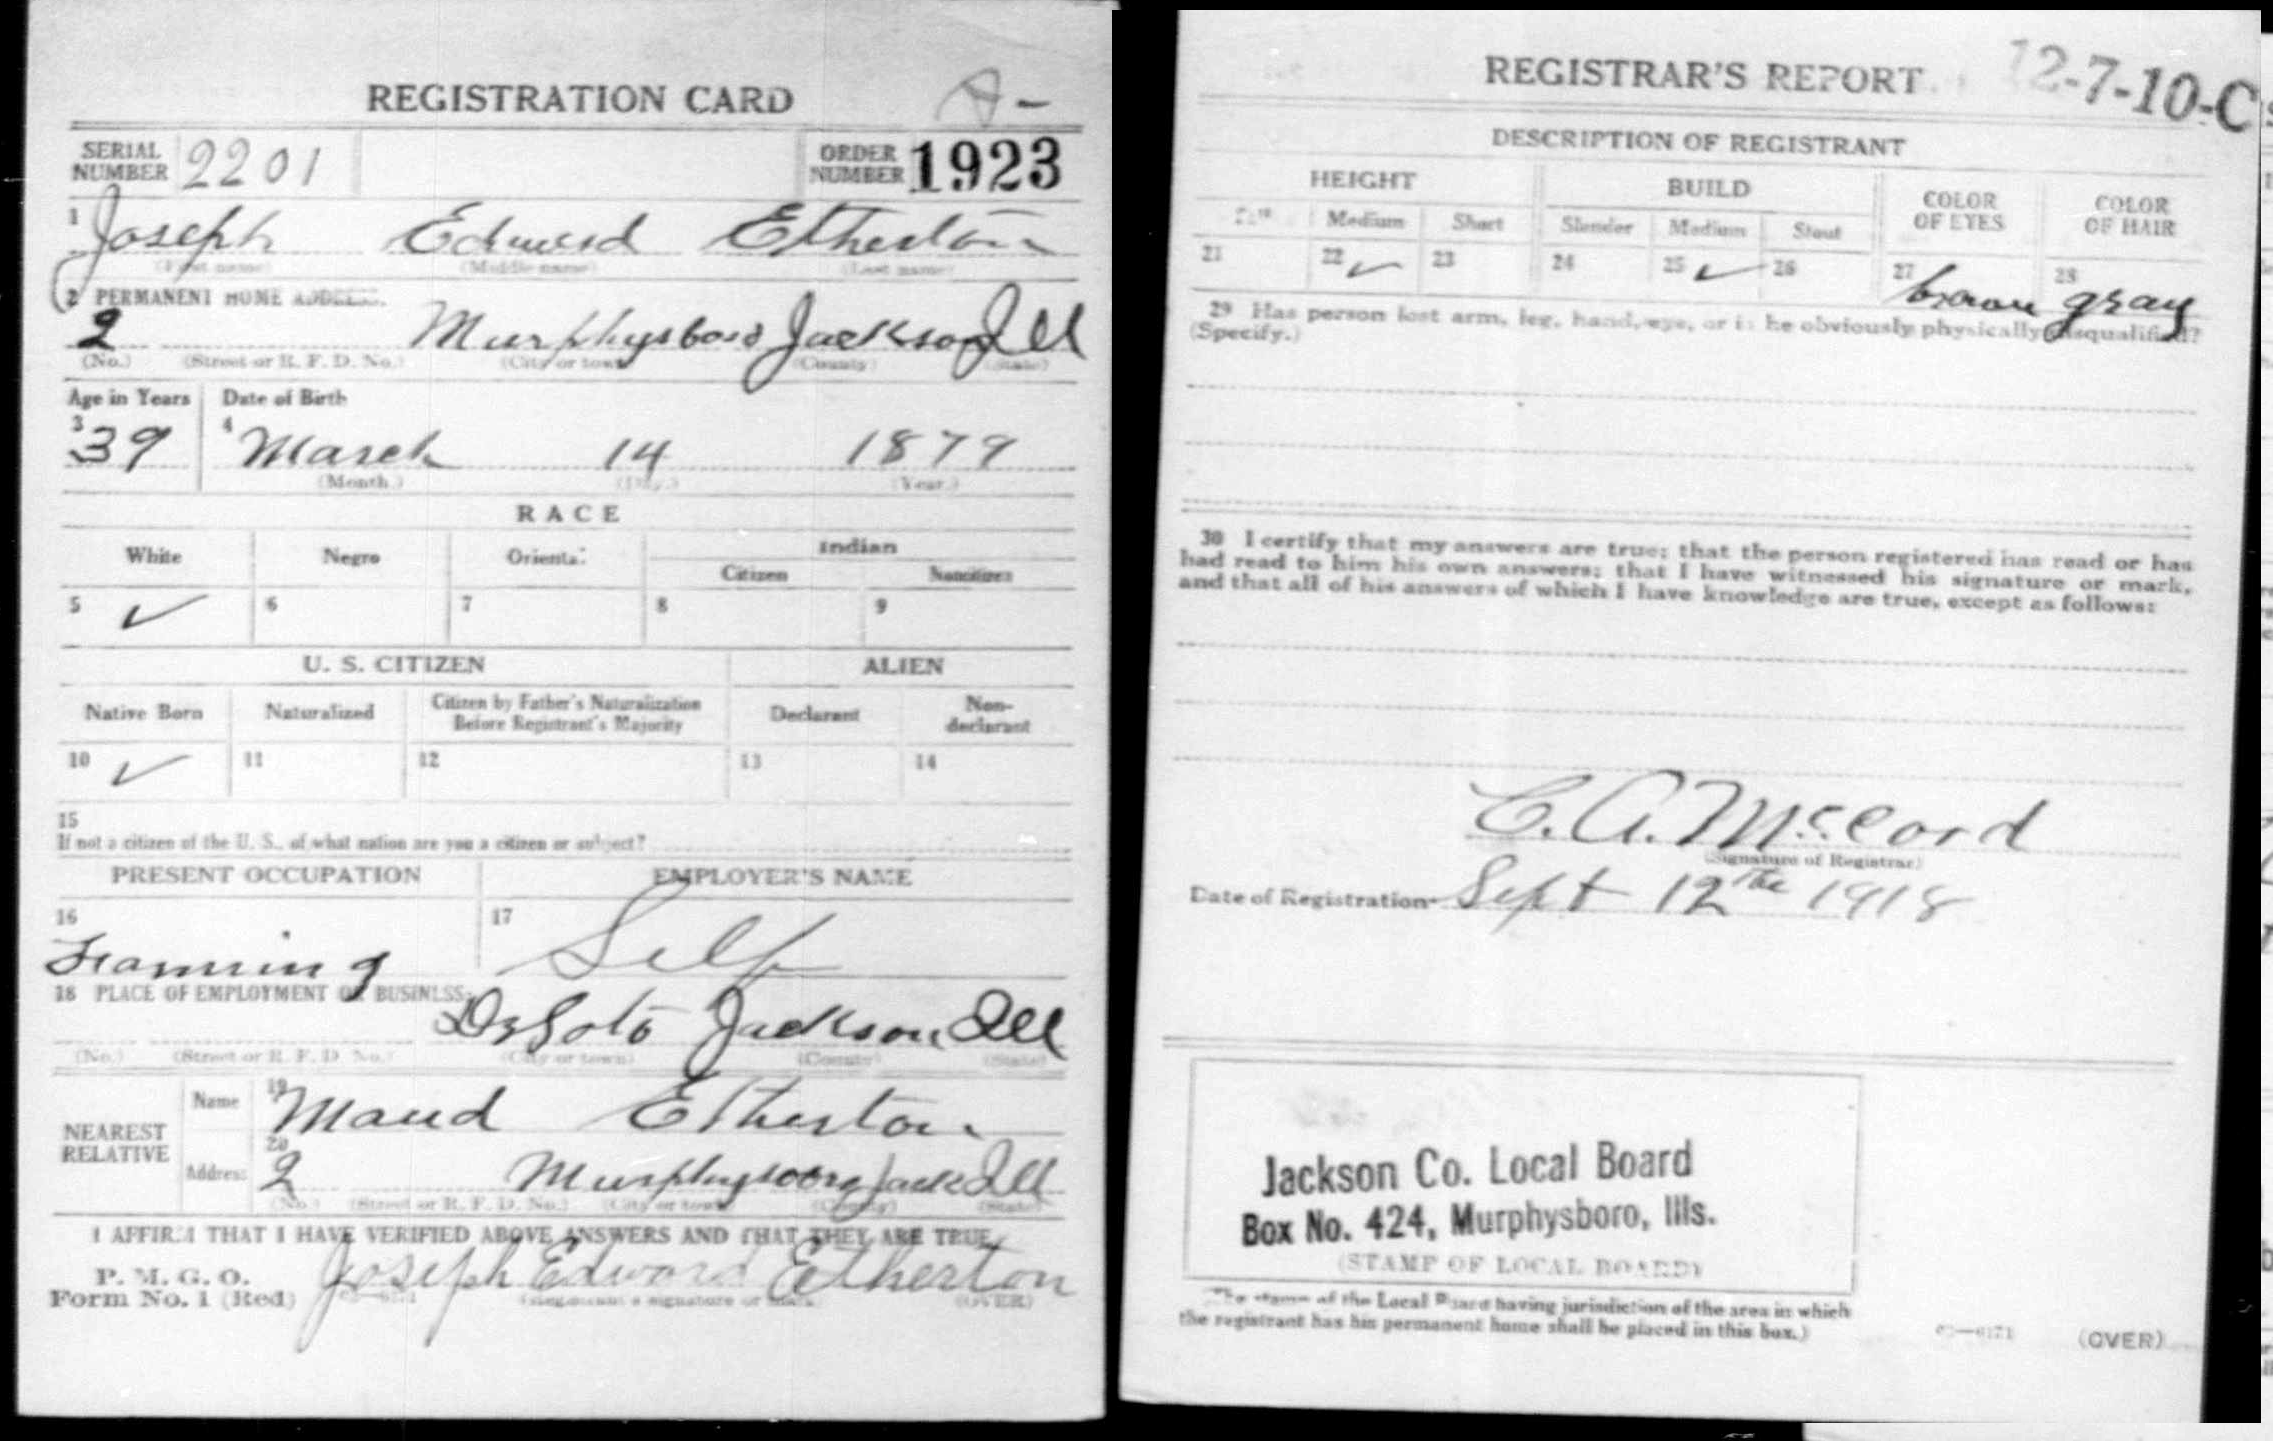 REGISTRATION CARD
SERIAL NUMBER 2201 ORDER NUMBER 1923
1 Joseph Edward Etherton
(First name) (Middle name) (Last name)
2 PERMANENT HOME ADDRESS:
2 Murphysboro Jackson Ill
(No.) (Street or R. F. D. No.) (City or town) (County) (State)
Age in Years Date of Birth
3 39 4 March 14 1879
(Month.) (Day.) (Year.)
RACE
White Negro Oriental Indian
Citizen Noncitizen
5 ✓ 6 7 8 9
U. S. CITIZEN ALIEN
Native Born Naturalized Citizen by Father's Naturalization Before Registrant's Majority Declarant Non-declarant
10 ✓ 11 12 13 14
15
If not a citizen of the U. S., of what nation are you a citizen or subject?
PRESENT OCCUPATION EMPLOYER'S NAME
16 Farming 17 Self
18 PLACE OF EMPLOYMENT OR BUSINESS:
DeSoto Jackson Ill
(No.) (Street or R. F. D. No.) (City or town) (County) (State)
NEAREST RELATIVE
Name 19 Maud Etherton
Address 20 2 Murphysboro Jack Ill
(No.) (Street or R. F. D. No.) (City or town) (County) (State)
I AFFIRM THAT I HAVE VERIFIED ABOVE ANSWERS AND THAT THEY ARE TRUE
P. M. G. O.
Form No. 1 (Red) Joseph Edward Etherton
(Registrant's signature or mark) (OVER)
REGISTRAR'S REPORT 12-7-10-C
DESCRIPTION OF REGISTRANT
HEIGHT BUILD COLOR OF EYES COLOR OF HAIR
Tall Medium Short Slender Medium Stout
21 22 ✓ 23 24 25 ✓ 26 27 brown 28 gray
29 Has person lost arm, leg, hand, eye, or is he obviously physically disqualified?
(Specify.)
30 I certify that my answers are true; that the person registered has read or has
had read to him his own answers; that I have witnessed his signature or mark,
and that all of his answers of which I have knowledge are true, except as follows:
C. A. McCord
(Signature of Registrar)
Date of Registration Sept 12the 1918
Jackson Co. Local Board
Box No. 424, Murphysboro, Ills.
(STAMP OF LOCAL BOARD)
(The stamp of the Local Board having jurisdiction of the area in which
the registrant has his permanent home shall be placed in this box.)
03—6171 (OVER)